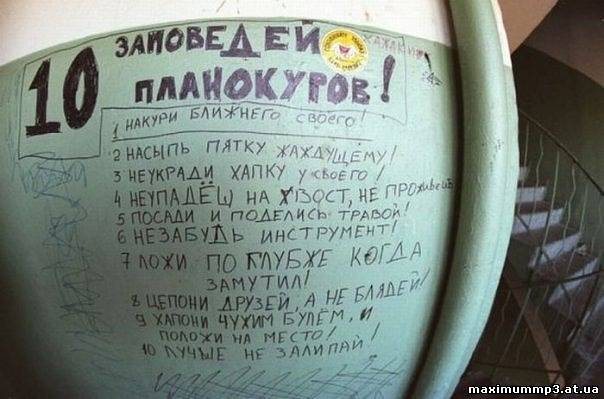 10 ЗАПОВЕДЕЙ
ПЛАНОКУРОВ!
1 НАКУРИ БЛИЖНЕГО СВОЕГО!
2 НАСЫПЬ ПЯТКУ ЖАЖДУЩЕМУ!
3 НЕУКРАДИ ХАПКУ У СВОЕГО!
4 НЕУПАДЁШ НА ХВОСТ, НЕ ПРОЖИВЕШЬ
5 ПОСАДИ И ПОДЕЛИСЬ ТРАВОЙ!
6 НЕЗАБУДЬ ИНСТРУМЕНТ!
7 ЛОЖИ ПО ГЛУБЖЕ КОГДА
ЗАМУТИЛ!
8 ЦЕПОНИ ДРУЗЕЙ, А НЕ БЛЯДЕЙ!
9 ХАПОНИ ЧУЖИМ БУЛЕМ, И
ПОЛОЖИ НА МЕСТО!
10 ЛУЧШЕ НЕ ЗАЛИПАЙ!
maximummp3.at.ua